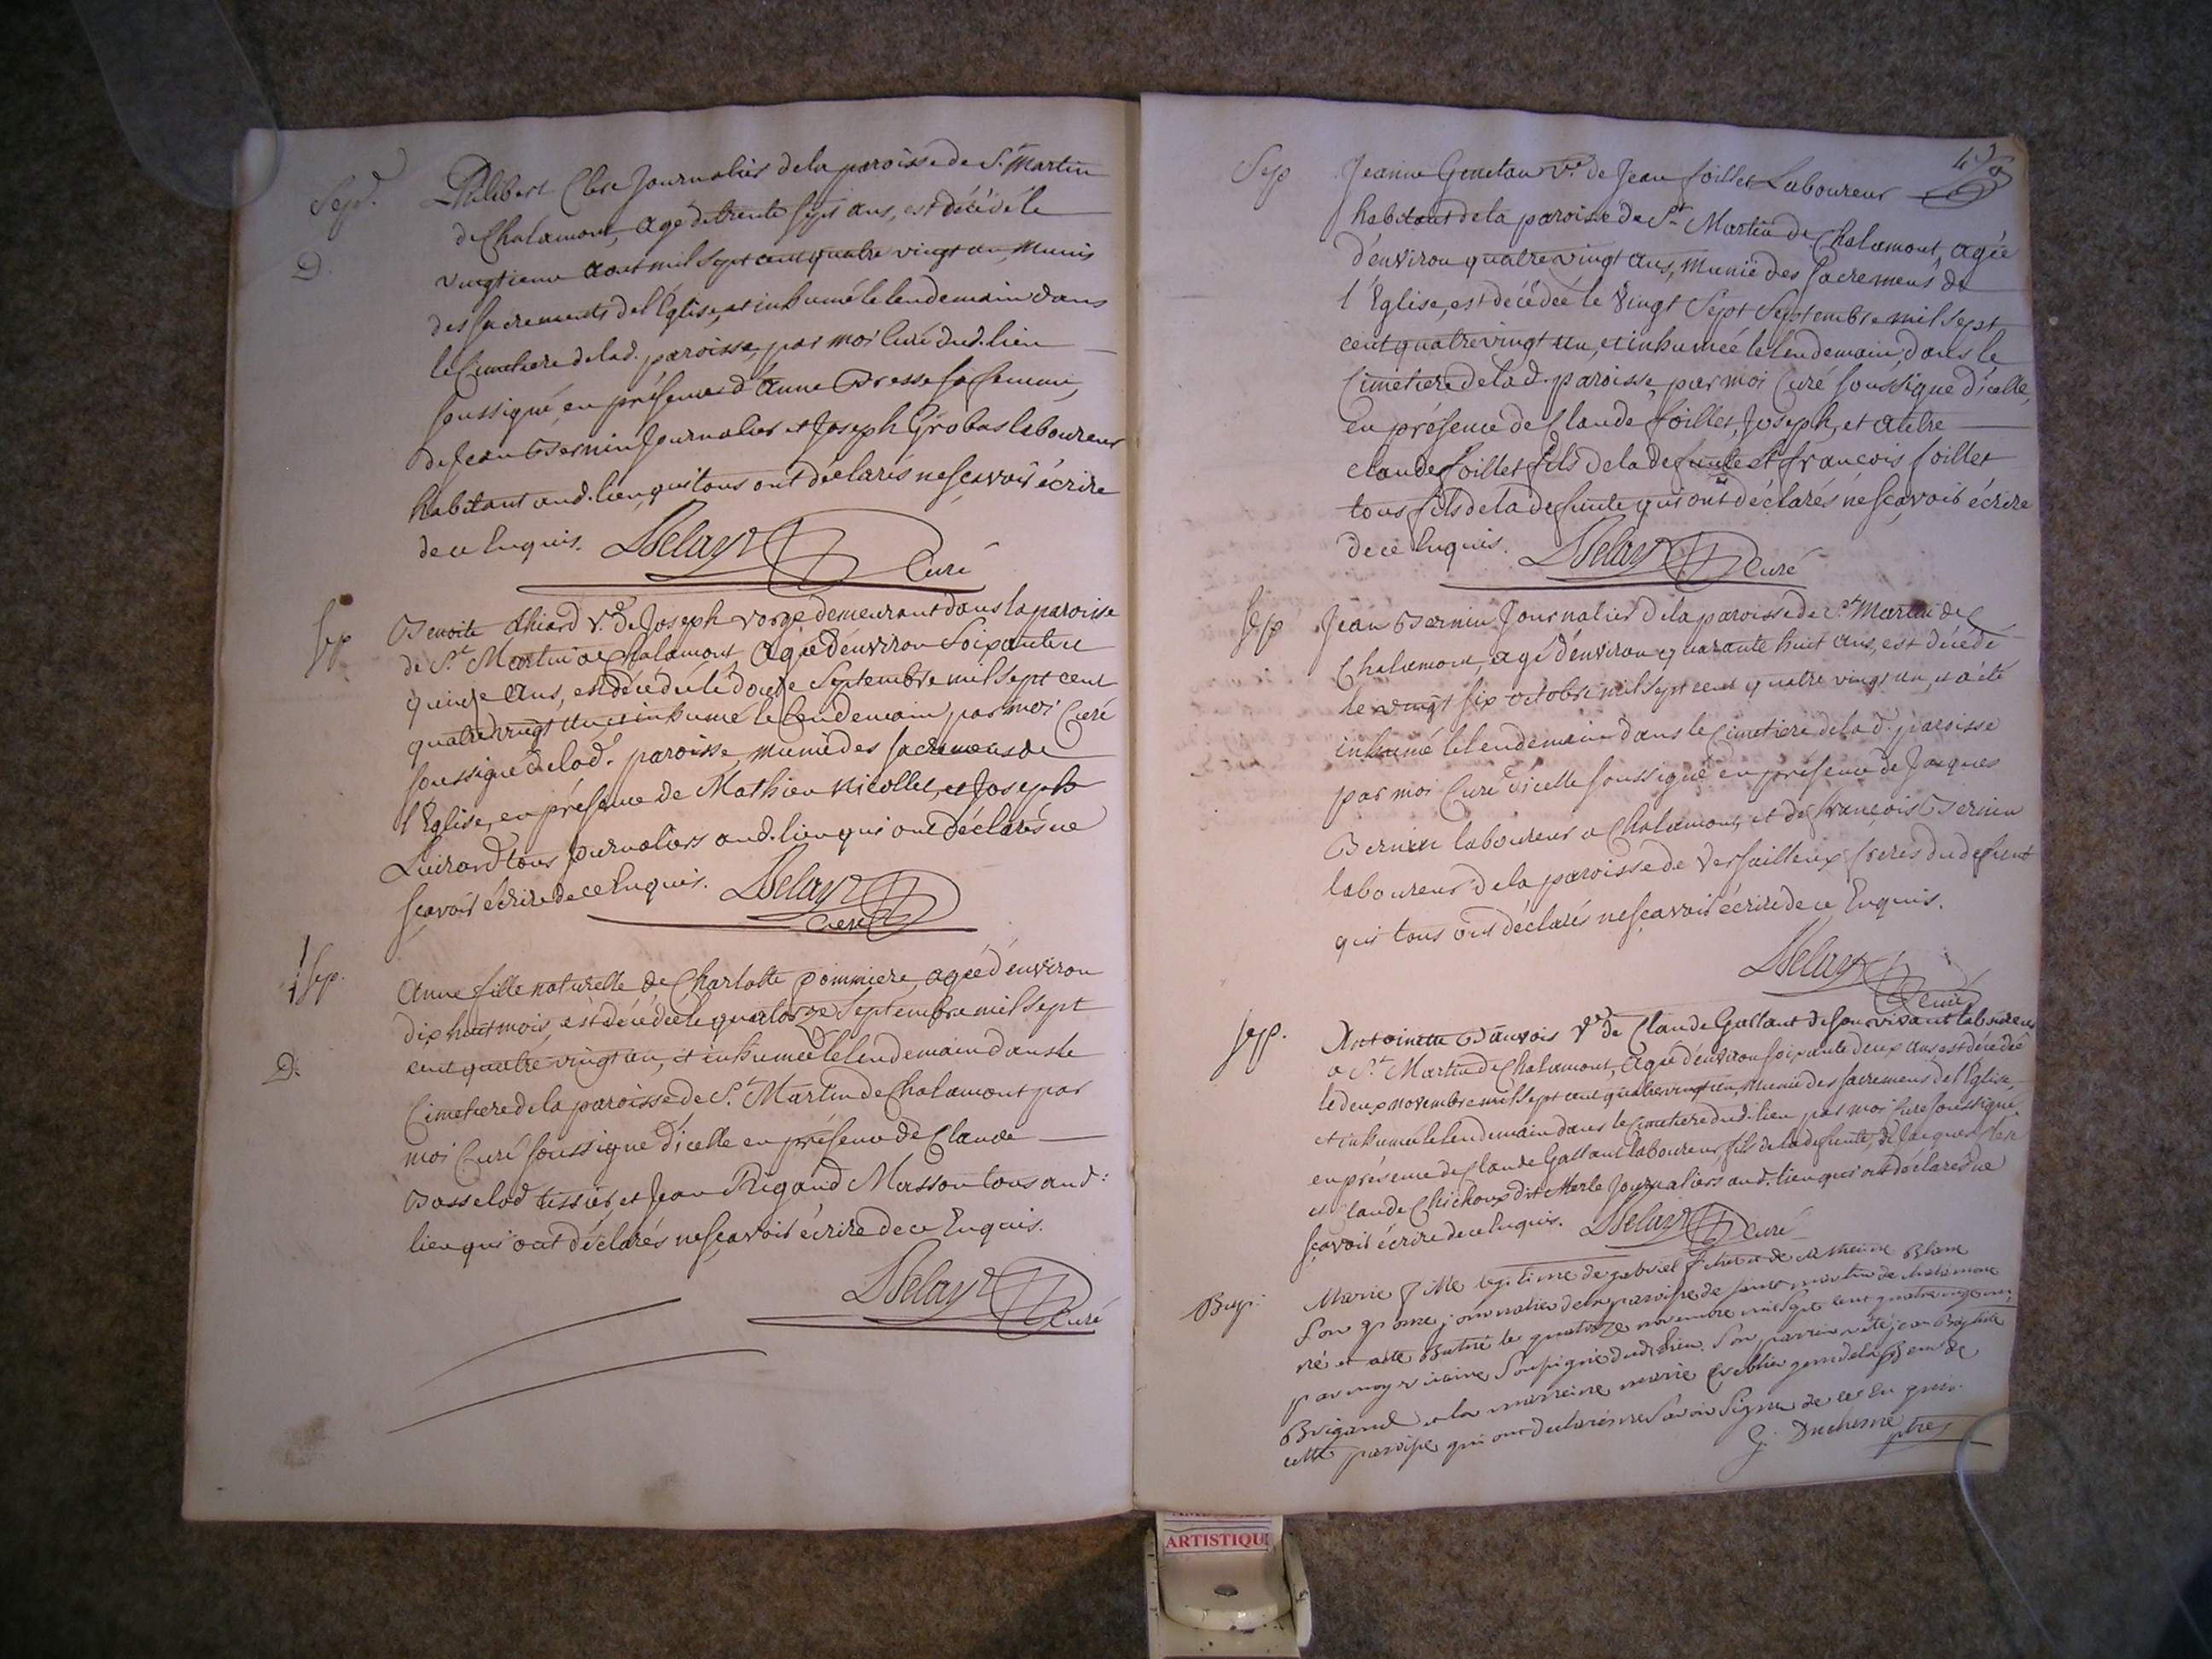 Sep.
D.
Philibert Clere Journalier de la paroisse de S.t Martin
de Chalamont, agé de trente sept ans, est décédé le
vingtieme aout mil sept cent quatre vingt un, munis
des sacrements de l'Église, et inhumé le lendemain dans
le Cimetiere de lad. paroisse, par moi Curé dud. lieu
soussigné, en présence d'Anne Presse sa femme,
de Jean Bernin Journalier et Joseph Grobas laboureur
habitant aud. lieu, qui tous ont déclarés ne sçavoir écrire
de ce Enquis. Delay Curé
Sep
Benoite Chiard v.e de Joseph Vorge demeurant dans la paroisse
de S.t Martin de Chalamont agée d'environ Soixante et
quinze ans, est décédée le douze Septembre mil sept cent
quatre vingt un, et inhumé le lendemain par moi Curé
soussigné de lad.e paroisse, munie des sacremens de
l'Eglise, en présence de Mathieu Nicollet, et Joseph
tous Journaliers aud. lieu qui ont déclarés ne
sçavoir écrire de ce Enquis. Delay
Curé
1 Sep.
D.
Anne fille naturelle de Charlotte Pommiere, agée d'environ
dix huit mois, est décédée le quatorze Septembre mil sept
cent quatre vingt un, et inhumée le lendemain dans le
Cimetiere de la paroisse de S.t Martin de Chalamont par
moi Curé soussigné d'icelle en présence de Claude
tissier, et Jean Rigaud Masson tous aud:
lieu qui ont déclarés ne sçavoir écrire de ce Enquis.
Delay
Curé
Sep
Jeanne Genetau v.e de Jean Foillet Laboureur
habitant de la paroisse de S.t Martin de Chalamont, agée
d'environ quatre vingt ans, munie des sacremens de
l'Église, est décédée le vingt Sept Septembre mil sept
cent quatre vingt un, et inhumée le lendemain dans le
Cimetiere de lad. paroisse, par moi Curé soussigné d'icelle,
en présence de Claude Foillet, Joseph, et autre
claude Foillet fils de la defunte et François Foillet
tous fils de la defunte qui ont déclarés ne sçavoir écrire
de ce Enquis. Delay Curé
Sep
Jean Bernin Journalier de la paroisse de S.t Martin de
Chalamont, agé d'environ quarante huit ans, est décédé
le vingt six octobre mil sept cent quatre vingt un, et a été
inhumé le lendemain dans le Cimetiere de lad. paroisse
par moi Curé d'icelle soussigné en présence de Jacques
Bernin laboureur a Chalamont, et de François Bernin
laboureur de la paroisse de Versailleux freres du defunt
qui tous ont déclarés ne sçavoir écrire de ce Enquis.
Delay
Curé
Sep.
Antoinette v.e de Claude Gallant de son vivant laboureur
a S.t Martin de Chalamont, agée d'environ soixante deux ans est décédée
le deux novembre mil sept cent quatre vingt un, munie des sacremens de l'Église,
et inhumée le lendemain dans le Cimetiere dud. lieu par moi Curé soussigné
en présence de Claude Gallant laboureur, fils de la defunte, de Jacques Clere
et Claude Chichoux dit Merle Journaliers aud. lieu qui ont déclarés ne
sçavoir écrire de ce Enquis. Delay Curé
Bap.
Marie fille legitime de gabriel et de Blanc
son journalier de la paroisse de saint martin de chalamont
né et a été Batisé le quatorze novembre mil sept cent quatre vingt un,
par moy vicaire soussigné dud. lieu. Son parrain a été jean Baptiste
et la marreine marie gens de
cette paroisse qui ont declarés ne savoir signer de ce Enquis.
G. Duchesne ptre
ARTISTIQU